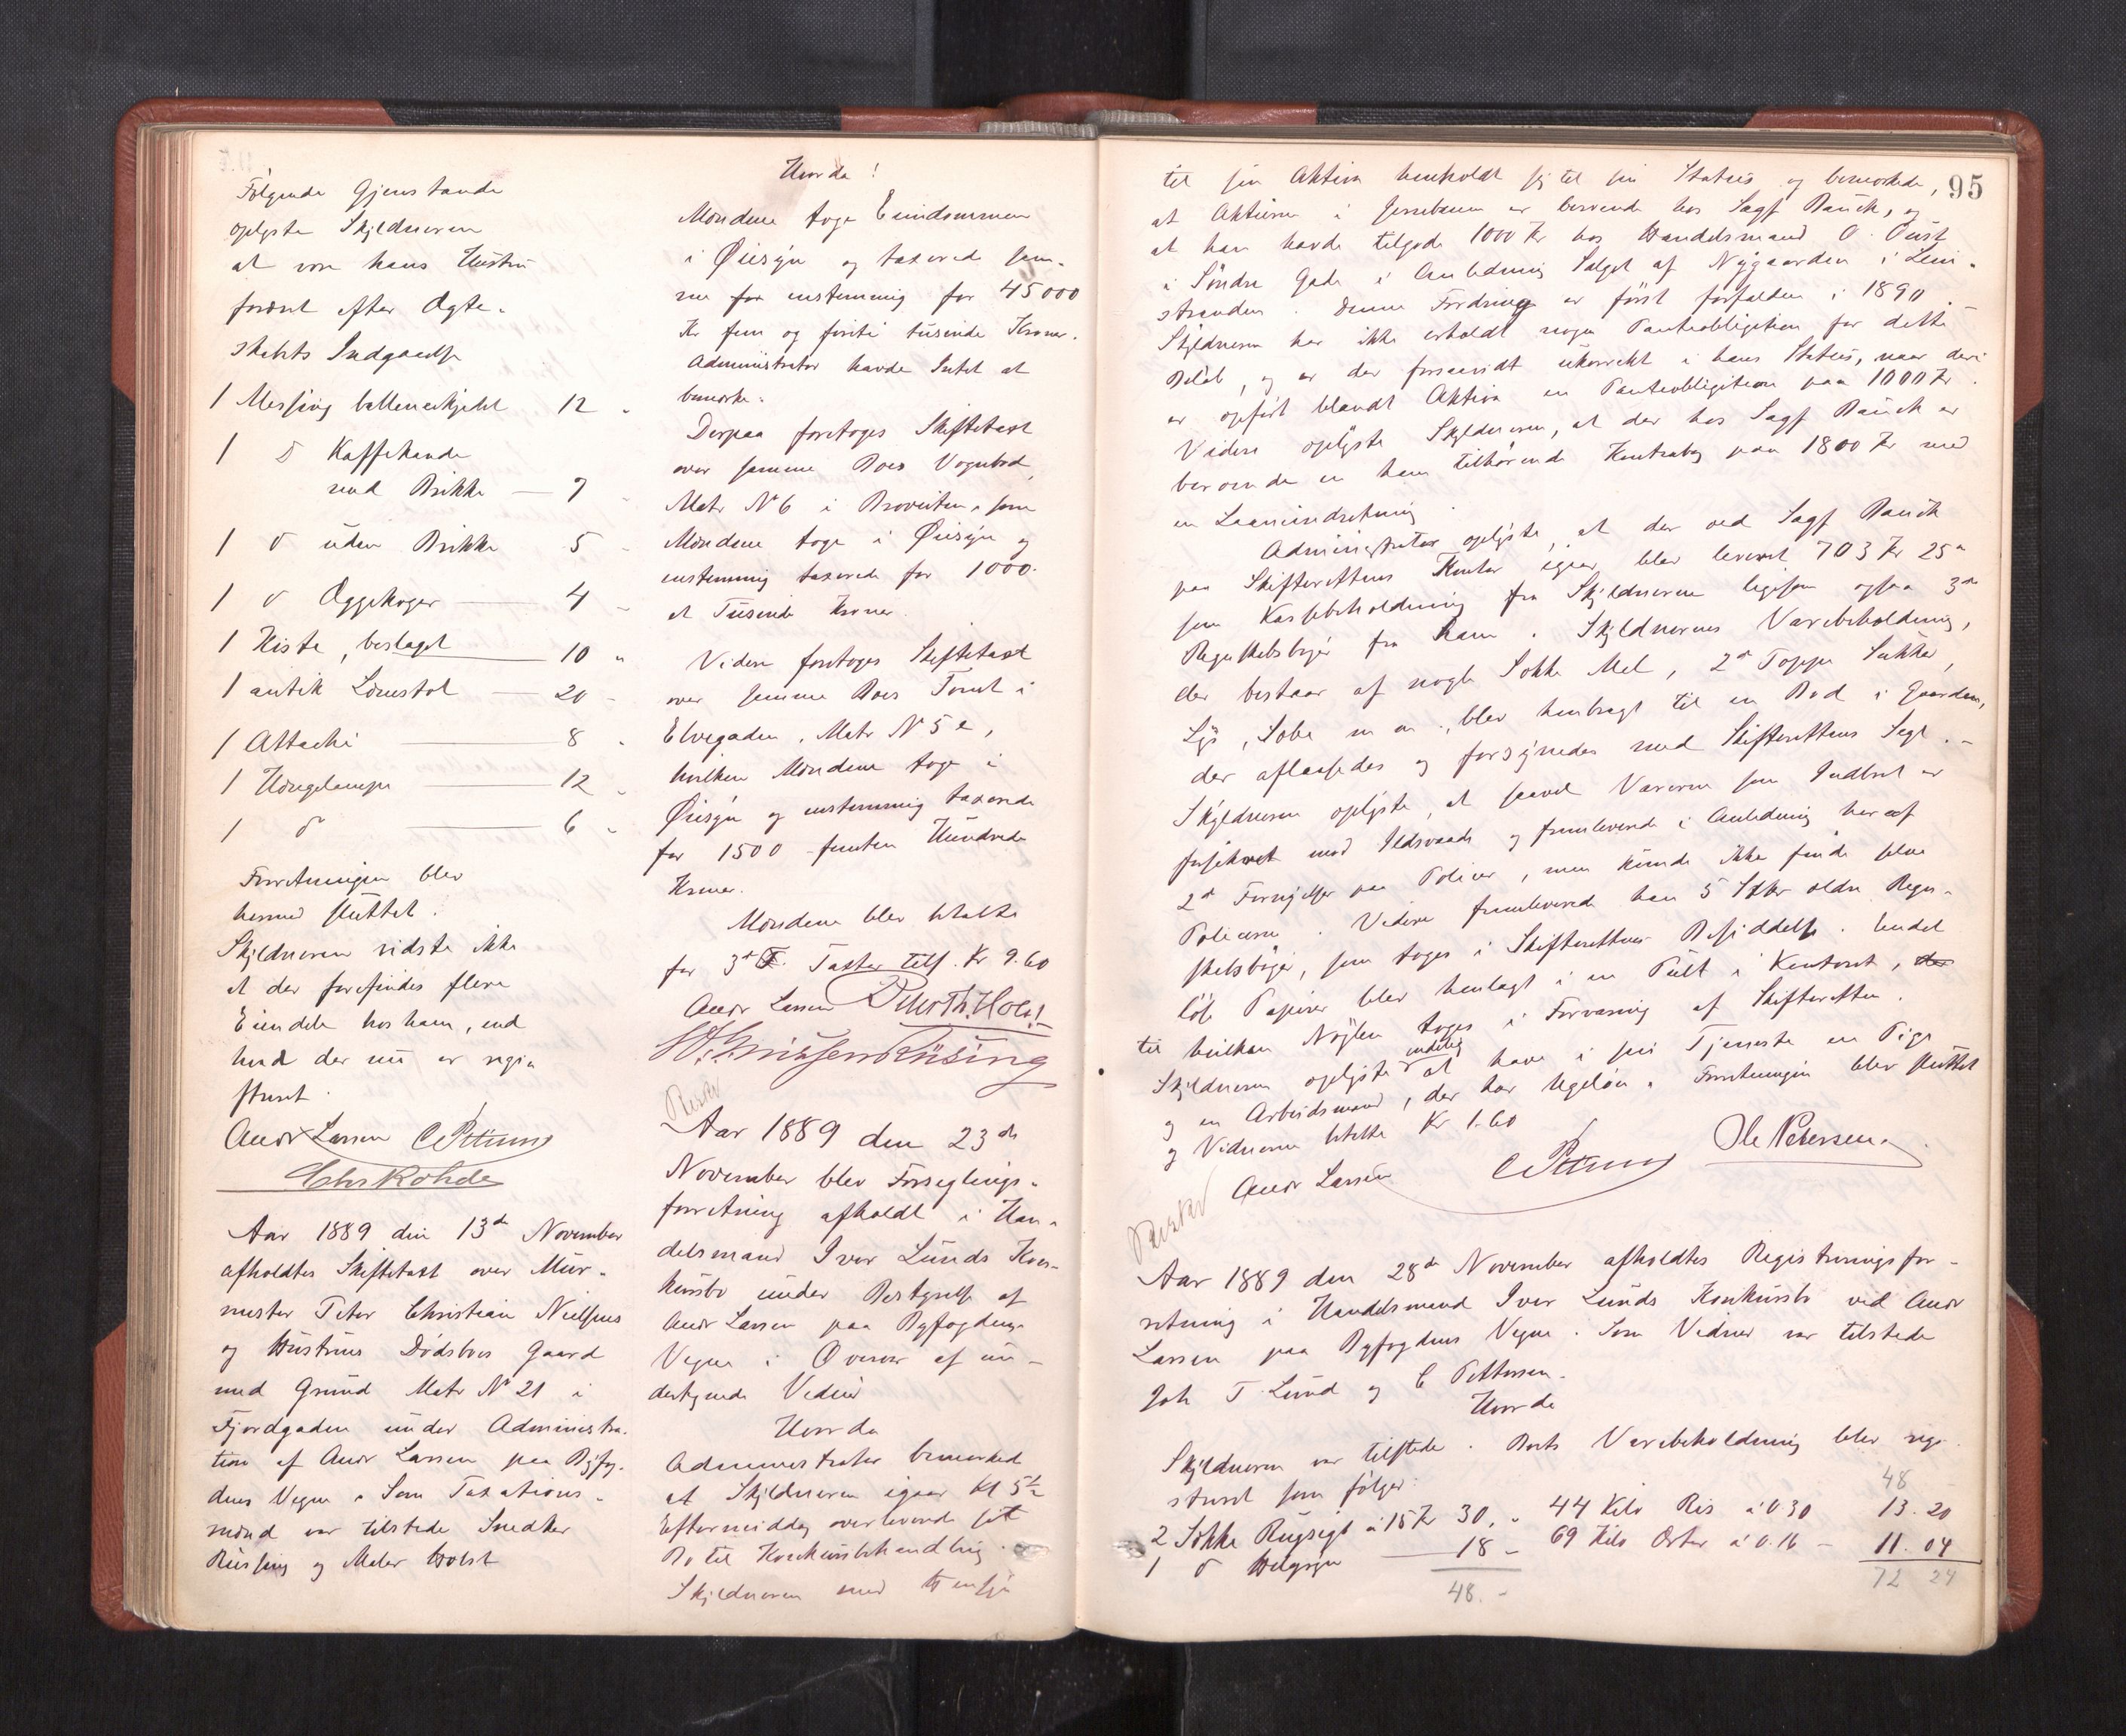 Følgende Gjenstande
oplyste Skyldneren
at være hans Hustru
foræret efter Ægte-
skabets Indgaaelse
1 Messing kjedel 12 -
1 D Kaffekande
med Brikke — 7 -
1 D uden Brikke 5 -
1 D Æggekoger — 4 -
1 Kiste, beslaget 10 "
1 antik Lænestol — 20 -
1 Attaché — 8 -
1 Hængelampe — 12 -
1 D — 6 -
Forretningen blev
hermed sluttet.
Skyldneren vidste ikke
at der forefindes flere
Eiendele hos ham, end
hvad der nu er regi-
streret.
Andr Larsen
Chr Rohde
Aar 1889 den 13de November
afholdtes Skiftetaxt over Mur-
mester Peter Christian Nielsens
og Hustrues Dødsboes Gaard
med Grund Matr No 21 i
Fjordgaden under Administra-
tion af Andr Larsen paa Byfog-
dens Vegne. Som Taxations-
mænd var tilstede Snedker
Rüssing og Maler Holst
Hvorda!
Mændene toge Eiendommen
i Øiesyn og taxered sam-
me for enstemmig for 45000
Kr fem og firti tusinde Kroner.
Administrator havde Intet at
bemærke.
Derpaa foretoges Skiftetaxt
over samme Boes Vognbod,
Matr No 6 i , som
Mændene toge i Øiesyn og
enstemmig taxerede for 1000.
et Tusinde Kroner.
Videre foretoges Skiftetaxt
over samme Boes Tomt i
Elvegaden, Matr No 5 e,
hvilken Mændene toge i
Øiesyn og enstemmig taxerede
for 1500 - femten Hundrede
Kroner.
Mændene blev betalte
for 3de Taxter tils. Kr 9.60
Andr Larsen
Aar 1889 den 23de
November blev Forseglings-
forretning afholdt i Han-
delsmand Iver Lunds Kon-
kursbo under Bestyrelse af
Andr Larsen paa Byfogdens
Vegne i Overvær af un-
dertegnede Vidner
Hvorda
Administrator bemærked
at Skyldneren igaar Kl 5½
Eftermiddag overleverede sit
Bo til Konkursbehandling.
Skyldneren med Hensyn
95
til sin Aktiva henholdt sig til sin Status og bemærkede,
at Aktierne i Jernbanen er beroende hos Sagf Bauck, og
at han havde tilgode 1000 Kr hos Handelsmand O.
i Søndre Gade i Anledning Salget af Nygaarden i
stranden. Denne Fordring er først forfalden i 1890. -
Skyldneren har ikke erholdt nogen Panteobligation for dette
Beløb, og er der forsaavidt ukorrekt i hans Status, naar deri
er opført blandt Aktiva en Panteobligation paa 1000 Kr.
Videre oplyste Skyldneren, at der hos Sagf Bauck er
beroende en ham tilhørende Kontrabog paa 1800 Kr med
en Laaneindretning.
Administrator oplyste, at der ved Sagf Bauck
paa Skifterettens Kontor igaar blev leveret 703 Kr 25 ø
som Kassebeholdning fra Skyldneren ligesom ogsaa 3de
Regnskabsbøger fra ham. Skyldnerens Varebeholdning,
der bestaar af nogle Sække Mel, 2de Toppe Sukker,
Lys, Sæbe m m ., blev henbragt til en Bod i Gaarden,
der aflaasedes og forsynedes med Skifterettens Segl. -
Skyldneren oplyste, at saavel Varerne som Indboet er
forsikret mod Ildsvaade og fremleverede i Anledning heraf
2de Fornyelser paa Policer, men kunde ikke finde selve
Policerne. Videre fremleverede han 5 Stkr ældre Regn-
skabsbøger, som toges i Skifterettens Besiddelse. Endel
løse Papirer blev henlagt i en Pult i Kontoret,
til hvilken Nøglen toges i Forvaring af Skifteretten.
Skyldneren oplyste endelig at have i sin Tjeneste en Pige
og en Arbeidsmand, der har Ugeløn. Forretningen blev sluttet
og Vidnerne betalte Kr 1.60
Andr Larsen
Ole Petersen
Aar 1889 den 28de November afholdtes Registreringsfor-
retning i Handelsmand Iver Lunds Konkursbo ved Andr
Larsen paa Byfogdens Vegne. Som Vidner var tilstede
Joh T. Lund og C Pettersen.
Hvorda
Skyldneren var tilstede. Boets Varebeholdning blev regi-
streret som følger:
2 Sække Rugsigt à 15 Kr 30, -
1 D — 18 -
48. -
48
44 Kilo Ris à 0.30 13. 20
69 Kilo Erter à 0.16 — 11. 04
72 24